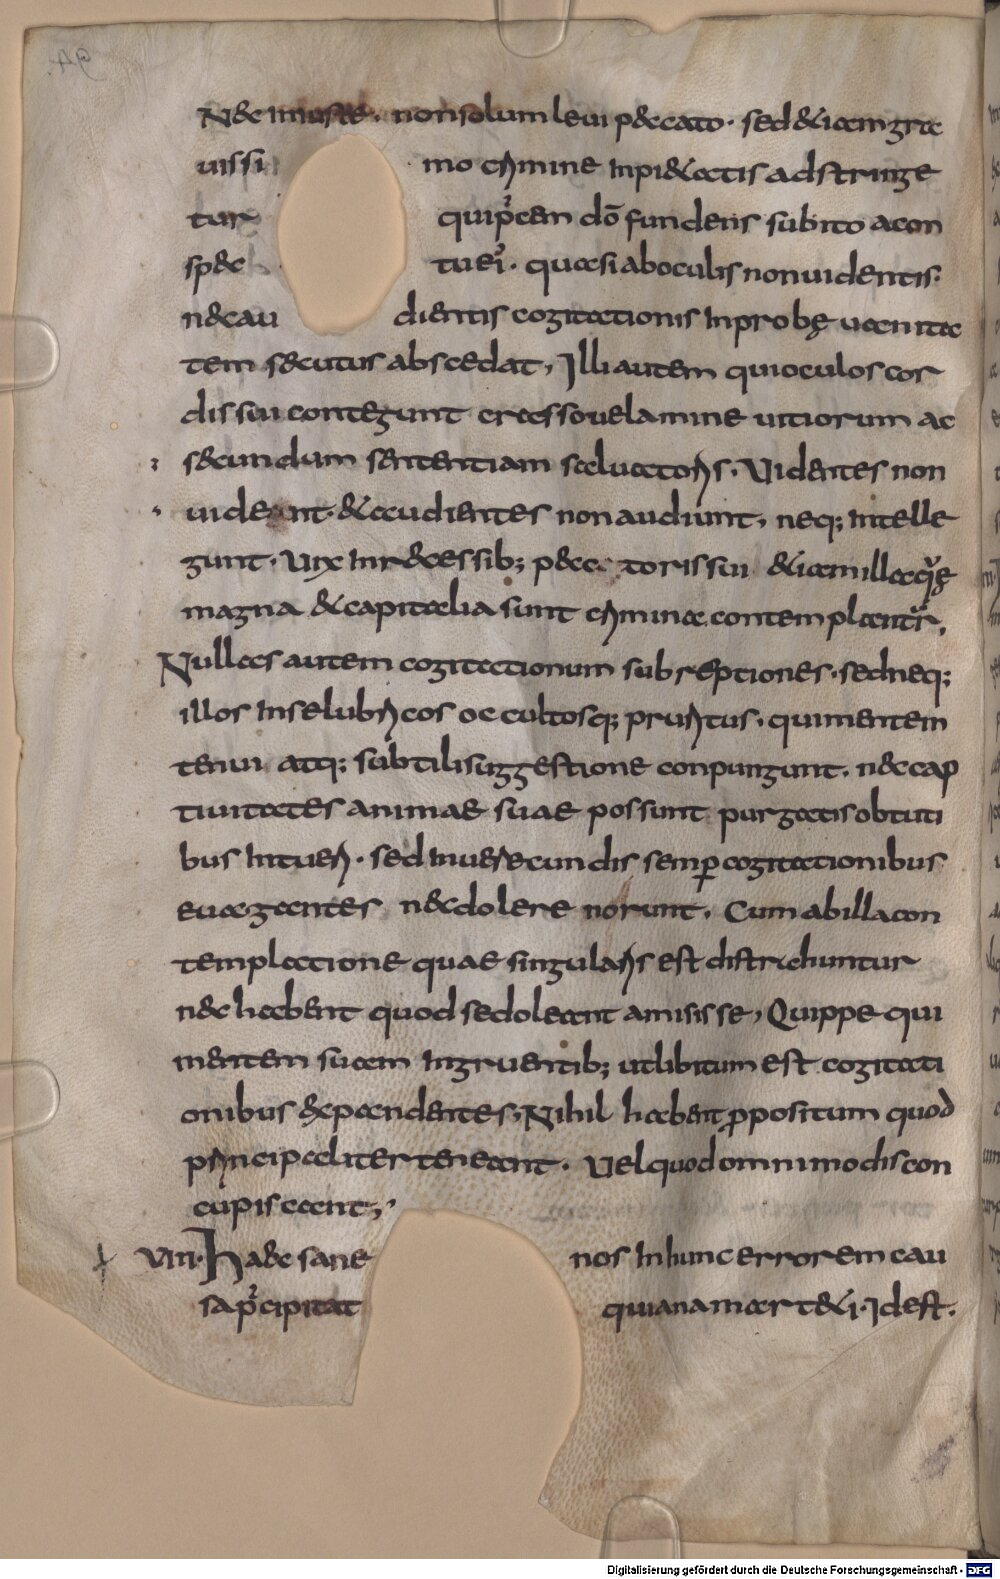 Nec iniuste. non solum leui peccato. sed etiam gra
uissi mo crimine inpietatis adstringe
tur qui p̄cem dō fundens subito a con
spec tu ei᾿. quasi ab oculis non uidentis.
nec au dientis cogitationis inprobę uanita
tem secutus abscedat, Illi autem qui oculos cor
dis sui contegunt crasso uelamine uitiorum ac
secundum sententiam saluatoris. Uidentes non
uident. & audientes non audiunt, neq; intelle
gunt. Uix in recessib; pec toris sui etiam illa quę
magna & capitalia sunt crimina contemplantur,
Nullas autem cogitationum subreptiones. sed neq;
illos inselubricos occultosq; pruritus. qui mentem
tenui atq; subtili suggestione conpungunt. nec cap
tiuitates animae suae possunt purgatis obtuti
bus intueri. sed inuerecundis semp cogitationibus
euagantes nec dolere norunt. Cum ab illa con
templatione quae singularis est distrahuntur
nec habent quod se doleant amisisse, Quippe qui
mentem suam ingruentib; ut libitum est cogitati
onibus expandentes, Nihil habent propositum quod
principaliter teneant. Uel quod omnimodis con
cupiscant;,
VIII. Haec sane nos in hunc errorem cau
sa p̄cipitat quia anamarteti. Id est.
Digitalisierung gefördert durch die Deutsche Forschungsgemeinschaft - DFG